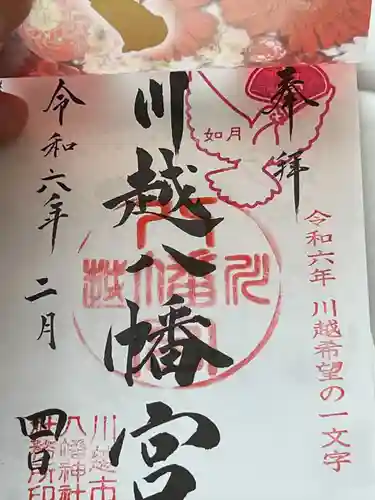 奉拝
如月
令和六年 川越希望の一文字
川越八幡宮
川越八幡宮
令和六年 二月 四日
川越市
八幡神社
社務所印